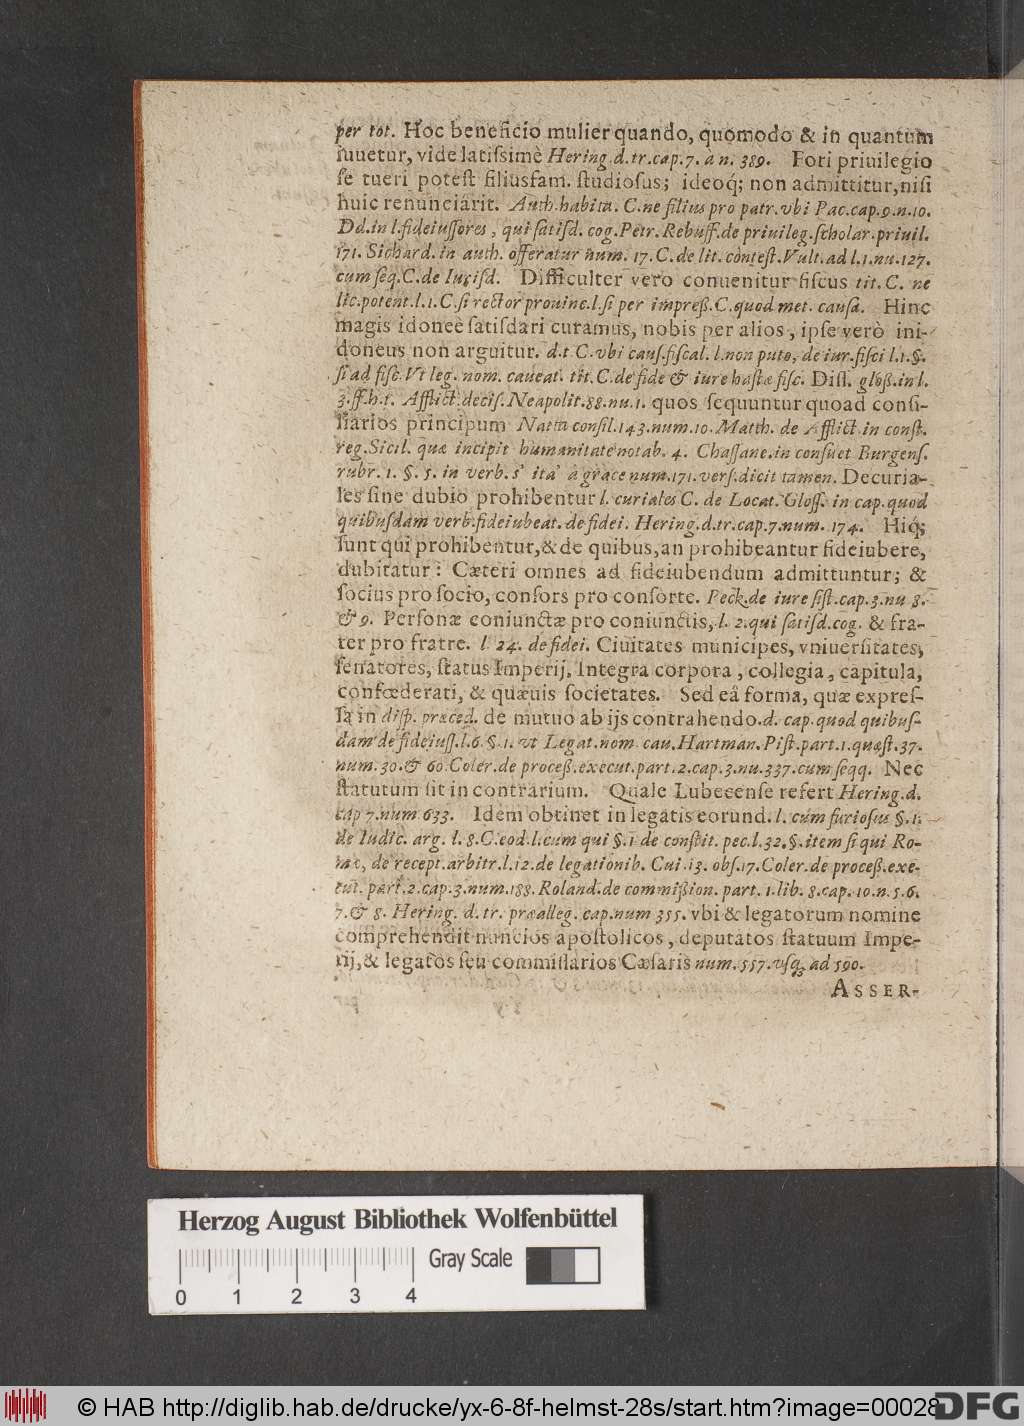 per tot. Hoc beneficio mulier quando, quomodo & in quantum
iuuetur, vide latiſsimè Hering.d.tr.cap.7. a n. 389. Fori priuilegio
ſe tueri poteſt filiusfam. ſtudioſus; ideoq́; non admittitur, niſi
huic renunciârit. Auth.habita. C.ne filius pro patr.vbi Pac.cap.9.n.10.
Dd.in l.fideiuſſores, qui ſatiſd. cog.Petr.Rebuff.de priuileg.ſcholar.priuil.
171. Sichard. in auth. offeratur num. 17. C. de lit. conteſt.Vult.ad l.1.nu.127.
cum ſeq.C.de Iuriſd. Difficulter verò conuenitur fiſcus tit. C. ne
fiſc.potent.l.1.C.ſi rector prouinc.l.ſi per impreß.C.quod met. cauſa. Hinc
magis idoneè ſatiſdari curamus, nobis per alios, ipſe verò ini-
doneus non arguitur. d.t C.vbi cauſ.fiſcal. l.non puto, de iur.fiſci l.1.§.
ſi ad fiſc.Vt leg. nom. caueat. tit.C.de fide & iure haſtæ fiſc. Diſſ. gloß.in l.
3.ff.h.t. Afflict.deciſ.Neapolit.88.nu.1. quos ſequuntur quoad conſi-
liarios principum Natta conſil.143.num.10.Matth. de Afflict.in conſt.
reg.Sicil. quæ incipit humanitate notab. 4. Chaſſane.in conſuet Burgenſ.
rubr. 1. §. 5. in verb. s' ita' à grace num.171.verſ.dicit tamen. Decuria-
les ſine dubio prohibentur l. curiales C. de Locat. Gloſſ. in cap.quod
quibuſdam verb.fideiubeat. de fidei. Hering.d.tr.cap.7.num. 174. Hiq́;
ſunt qui prohibentur, & de quibus, an prohibeantur fideiubere,
dubitatur: Cæteri omnes ad fideiubendum admittuntur; &
ſocius pro ſocio, conſors pro conſorte. Peck.de iure ſiſt.cap.3.nu 8.
& 9. Perſonæ coniunctæ pro coniunctis, l. 2.qui ſatiſd.cog. & fra-
ter pro fratre. l. 24. de fidei. Ciuitates municipes, vniuerſitates,
ſenatores, ſtatus Imperij. Integra corpora, collegia, capitula,
confœderati, & quæuis ſocietates. Sed eâ forma, quæ expreſ-
ſa in diſp. præced. de mutuo ab ijs contrahendo. d. cap.quod quibuſ-
dam de fideiuſſ.l.6.§.1.vt Legat.nom cau.Hartman.Piſt.part.1.quæſt.37.
num.30.& 60.Coler.de proceß.execut.part.2.cap.3.nu.337.cum ſeqq. Nec
ſtatutum ſit in contrarium. Quale Lubecenſe refert Hering.d.
cap 7.num 633. Idem obtinet in legatis eorund. l. cum furioſus §.1.
de Iudic. arg. l. 8.C.eod.l.cum qui §.1 de conſtit. pec.l.32.§.item ſi qui Ro-
mæ, de recept.arbitr.l.12.de legationib. Cui.13. obſ.17.Coler.de proceß.exe-
cut. part.2.cap.3.num.188.Roland.de commißion. part. 1.lib. 8.cap.10.n.5.6.
7.& 8. Hering. d. tr. præalleg. cap.num 355. vbi & legatorum nomine
comprehendit nuncios apoſtolicos, deputatos ſtatuum Impe-
rij, & legatos ſeu commiſſarios Cæſaris num.557.vſq; ad 590.
ASSER-
Herzog August Bibliothek Wolfenbüttel
Gray Scale
0 1 2 3 4
© HAB http://diglib.hab.de/drucke/yx-6-8f-helmst-28s/start.htm?image=00028
DFG